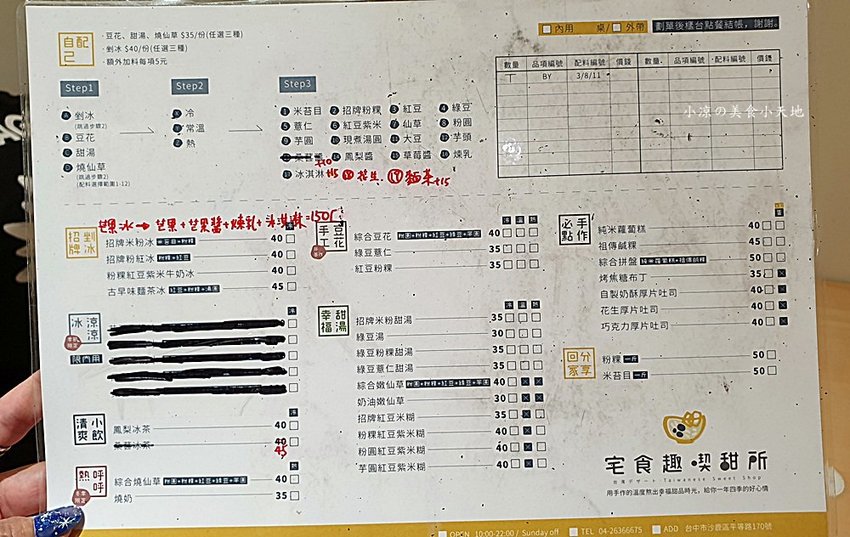 自己配
·豆花、甜湯、燒仙草 $35/份(任選三種)
·剉冰 $40/份(任選三種)
·額外加料每項5元
內用 桌/ 外帶 劃單後櫃台點餐結帳,謝謝。
數量 品項編號 配料編號 價錢 數量 品項編號 配料編號 價錢
BY 3/8/11
小凉の美食小天地
Step1 Step2 Step3
剉冰
(跳過步驟2)
豆花
甜湯
燒仙草
(跳過步驟2)
(配料選擇範圍1-12)
冷
常溫
熱
米苔目 招牌粉粿 紅豆 綠豆
薏仁 紅豆紫米 仙草 粉圓
芋圓 現煮湯圓 大豆 芋頭
鳳梨醬 草莓醬 煉乳
冰淇淋 +15 花生 麵茶+15
芒果冰→芒果+芒果醬+煉乳+冰淇淋=150
招牌剉冰
招牌米粉冰 米苔目+粉粿 40
招牌粉紅冰 粉粿+紅豆 40
粉粿紅豆紫米牛奶冰 40
古早味麵茶冰 45
冰涼涼
限內用
清爽小飲
鳳梨冰茶 40
桑葚冰茶 40
45
熱呼呼
綜合燒仙草 粉圓+粉粿+紅豆+綠豆+芋圓 40
燒奶 35
手工豆花
綜合豆花 粉圓+粉粿+紅豆+綠豆+芋圓 40
綠豆薏仁 35
紅豆粉粿 35
幸福甜湯
招牌米粉甜湯 35
綠豆湯 30
綠豆粉粿甜湯 35
綠豆薏仁甜湯 35
綜合嫩仙草 粉圓+粉粿+紅豆+綠豆+芋圓 40
奶油嫩仙草 30
招牌紅豆米糊 35
粉粿紅豆紫米糊 40
粉圓紅豆紫米糊 40
芋圓紅豆紫米糊 40
必點手作
純米蘿蔔糕 40
祖傳鹹粿 45
綜合拼盤 純米蘿蔔糕+祖傳鹹粿 50
烤焦糖布丁 35
自製奶酥厚片吐司 40
花生厚片吐司 40
巧克力厚片吐司 40
回家分享
粉粿 一斤 50
米苔目 一斤 50
宅食趣喫甜所
台湾デザート Taiwanese Sweet Shop
用手作的溫度熬出幸福甜品時光,給你一年四季的好心情
OPEN 10:00-22:00 / Sunday off TEL 04-26366675 ADD 台中市沙鹿區平等路170號